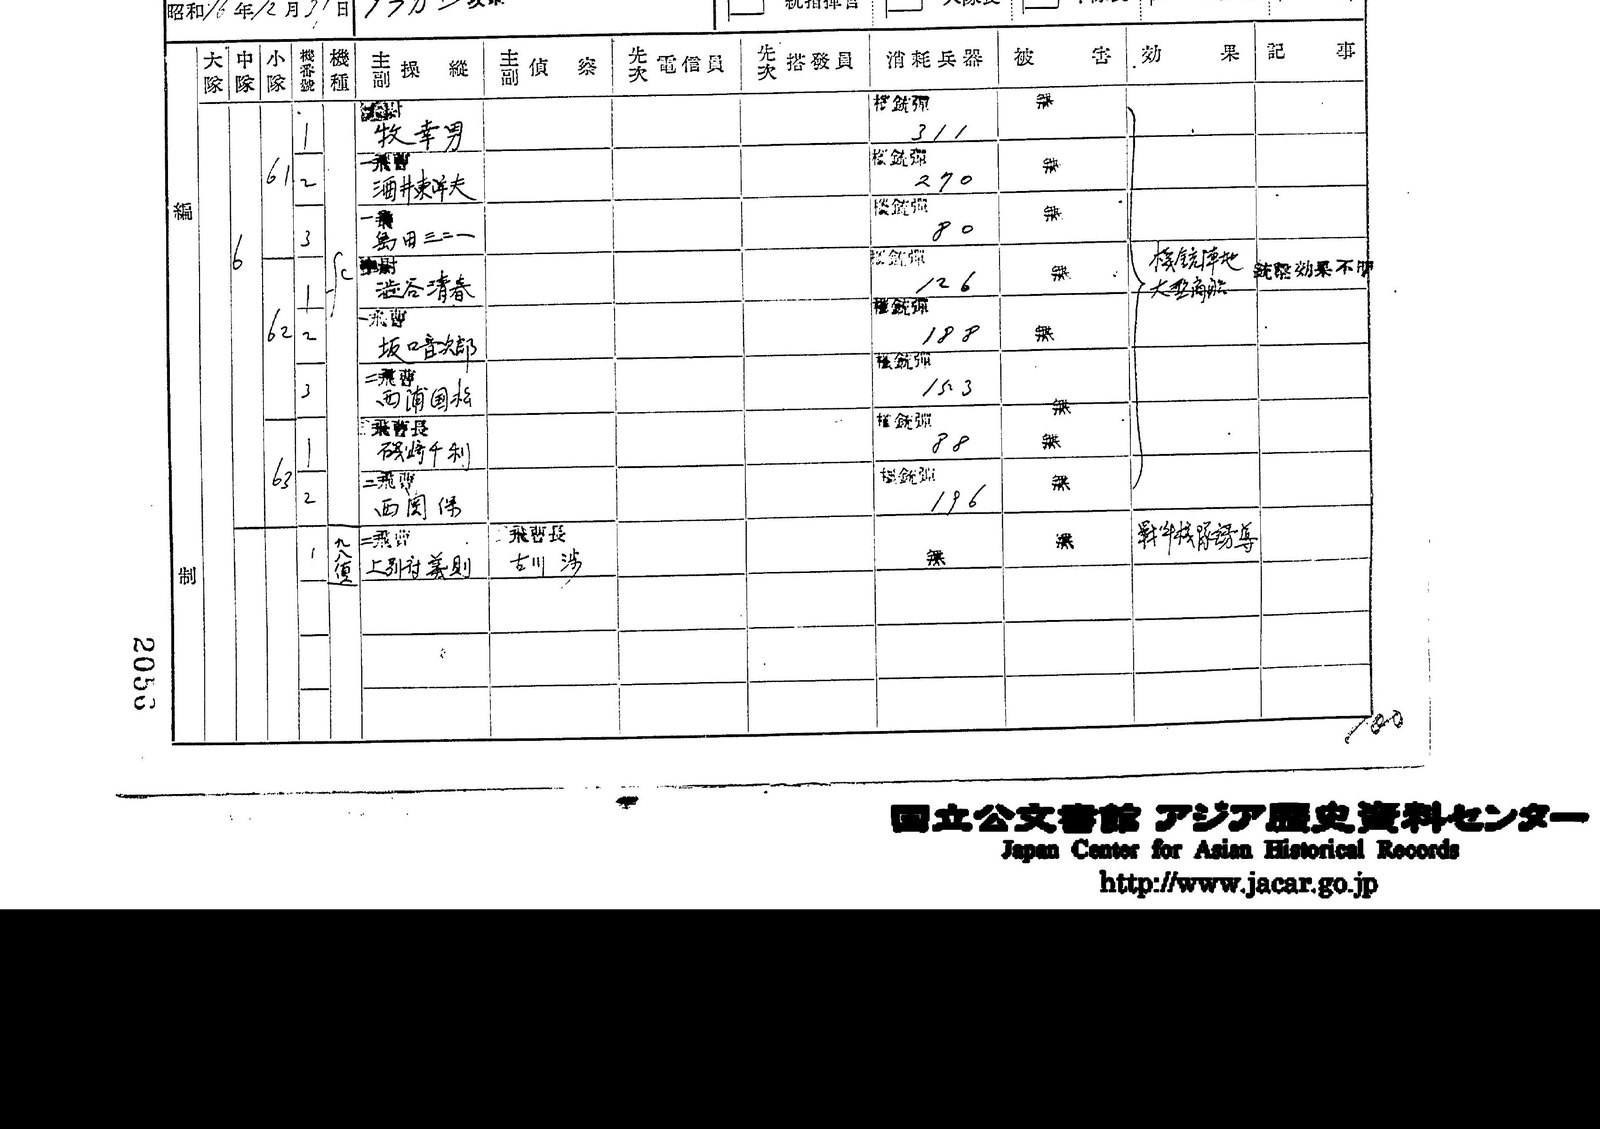 昭和16年12月31日 タラカン攻撃
統指揮官 大隊長 中隊長
大隊 中隊 小隊 機番號 機種 主副 操縱 主副 偵察 先次 電信員 先次 搭發員 消耗兵器 被害 効果 記事
編制
6 61 1 fc 牧幸男 機銃彈 311 無
2 一飛曹 酒井東洋夫 機銃彈 270 無
3 一飛 島田三二一 機銃彈 80 無
62 1 中尉 澁谷清春 機銃彈 126 無 機銃陣地 大型商船 銃撃効果不明
2 一飛曹 坂口音次郎 機銃彈 188 無
3 二飛曹 西浦国松 機銃彈 153 無
63 1 飛曹長 磯崎千利 機銃彈 88 無
2 二飛曹 西岡保 機銃彈 196 無
1 九八偵 二飛曹 上別府義則 飛曹長 古川渉 無 無 戦斗機隊誘導
2056
100
国立公文書館 アジア歴史資料センター
Japan Center for Asian Historical Records
http://www.jacar.go.jp